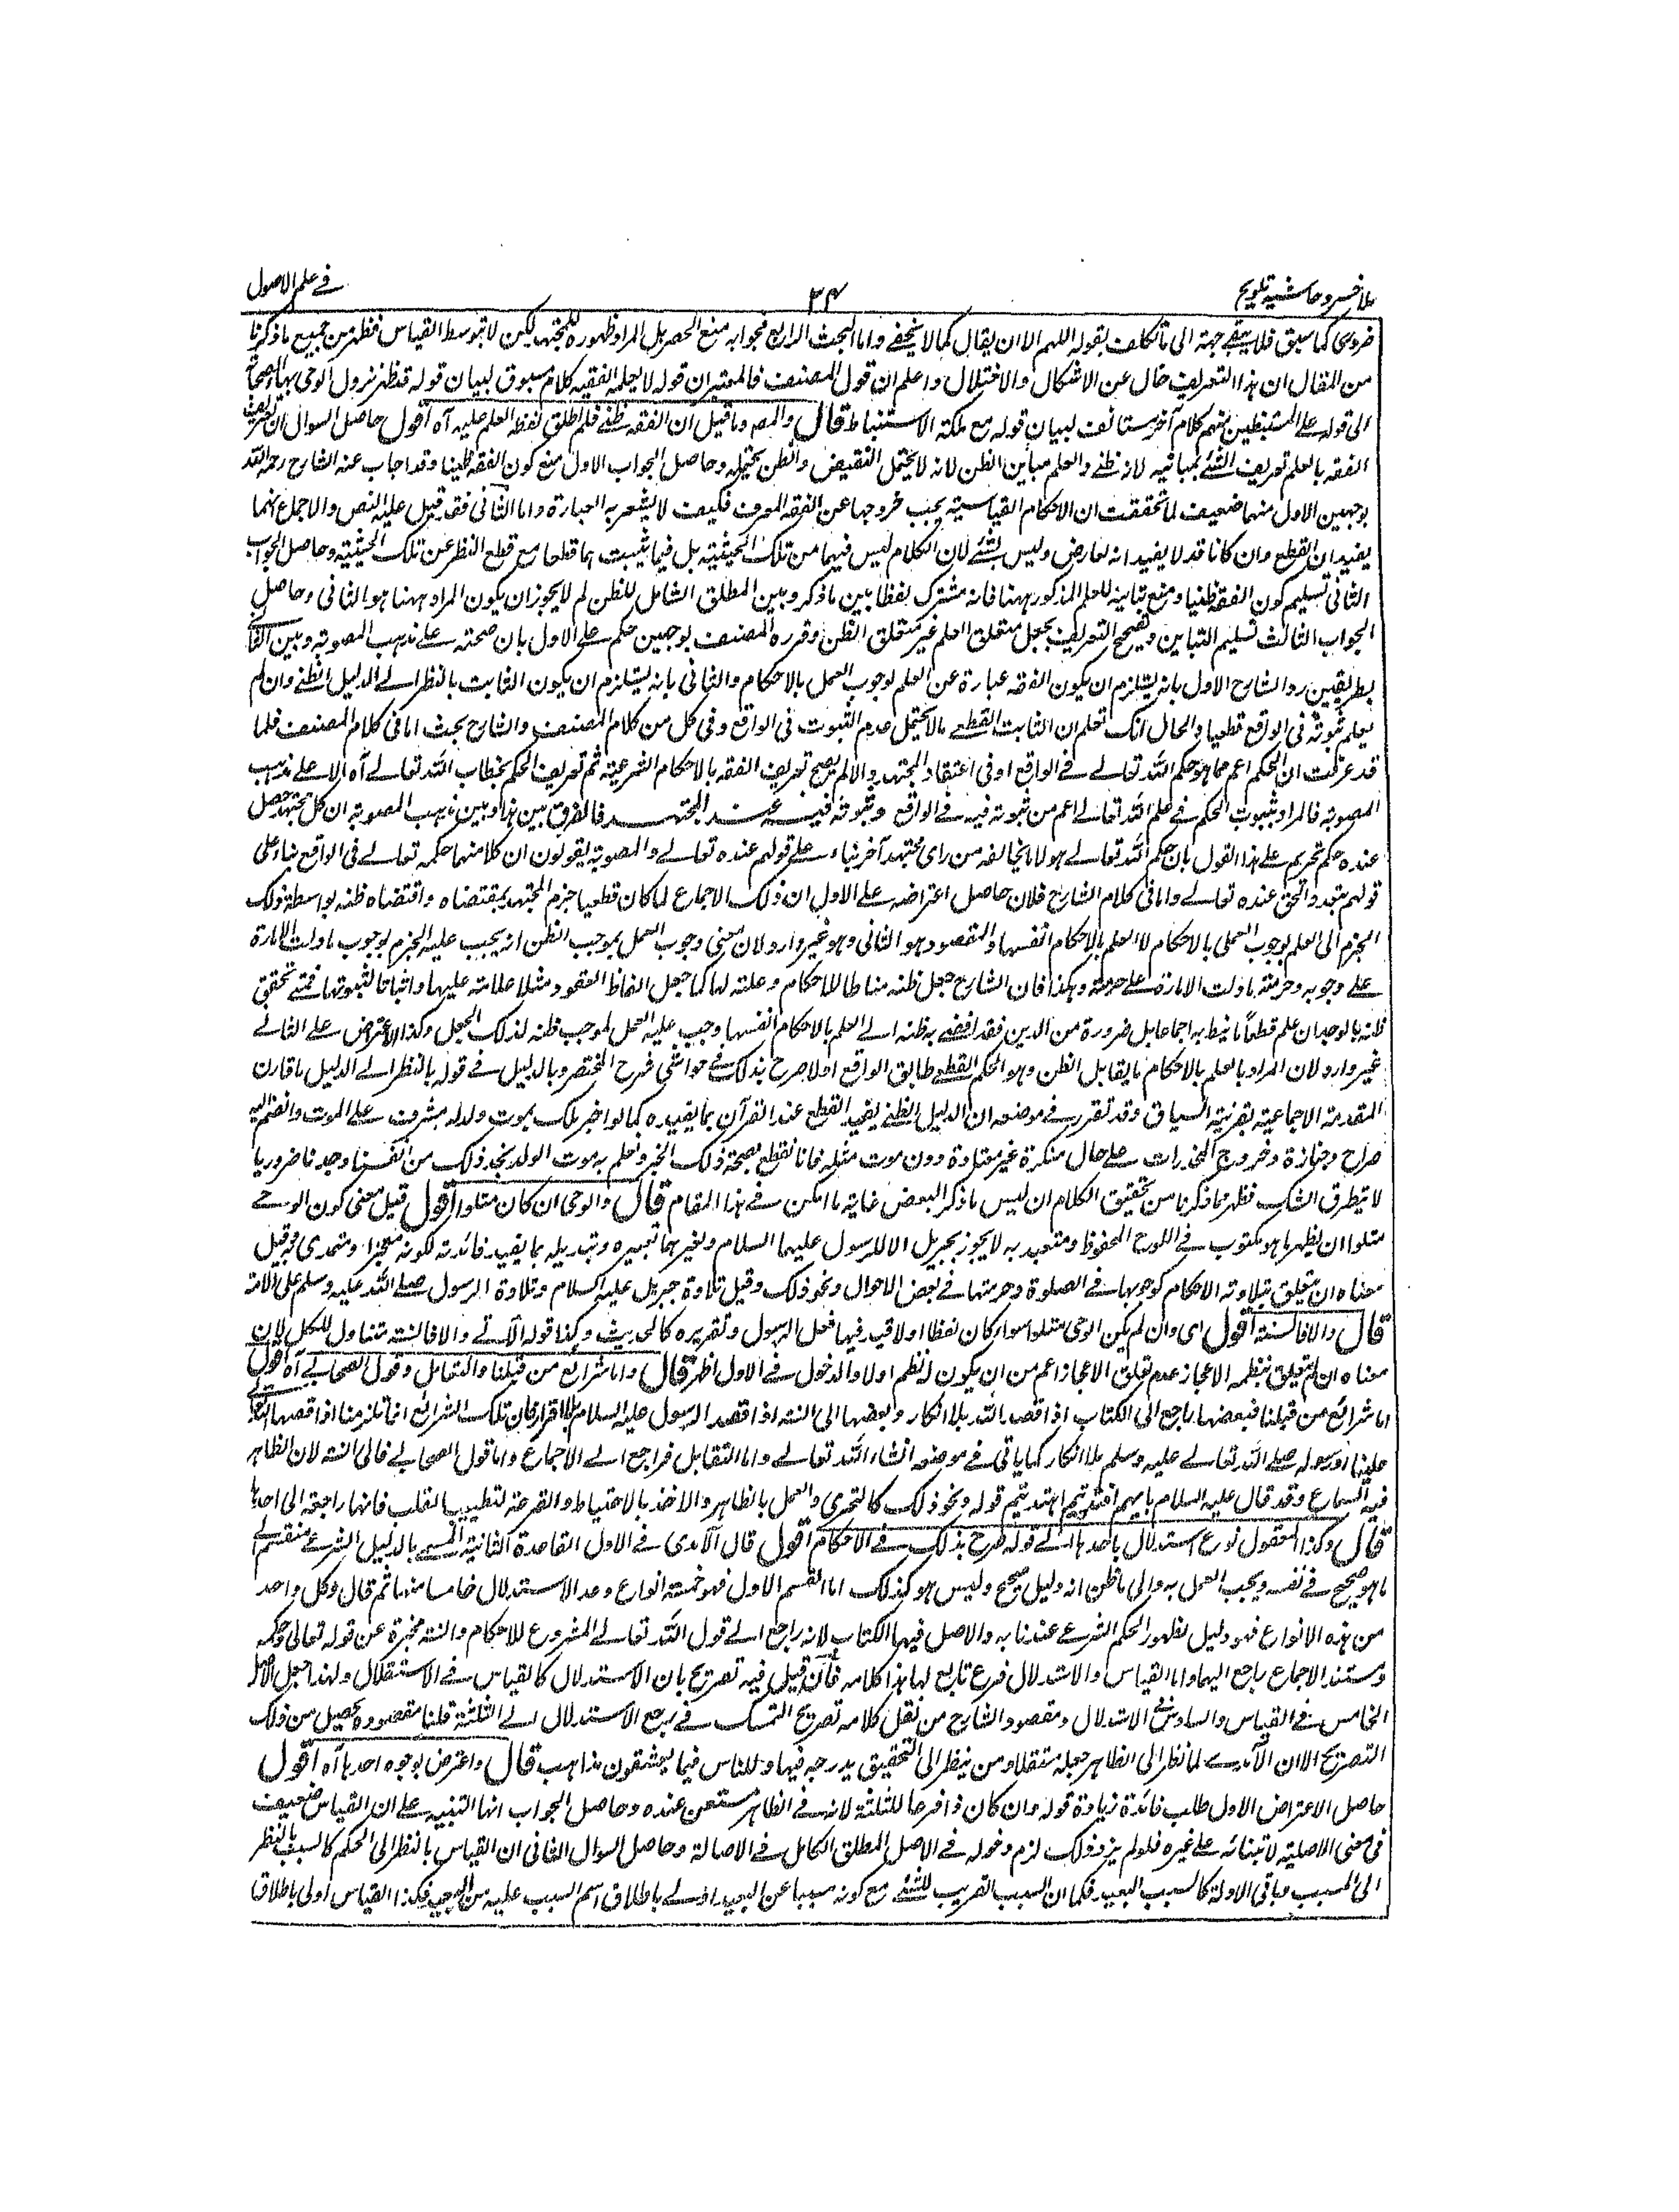 ملا خسرو حاشية تلويح
٣٤
في علم الاصول
ضروري كما سبق فلا يبقى جهة الى ما تكلف بقوله اللهم الا ان يقال كما لا يخفى واما البحث الرابع فجوابه منع الحصر بل المراد ظهوره للمجتهد لكن لا بتوسط القياس فظهر من جميع ما ذكرنا
من المقال ان هذا التعريف خال عن الاشكال والاختلال واعلم ان قول المصنف فالمعتبر ان قوله لا يعلمه الفقيه كلام مسوق لبيان قوله قد ظهر نزول الوحي بها
الى قوله على المستنبطين منهم كلام آخر مستانف لبيان قوله مع ملكة الاستنباط قال والمص وما قيل ان الفقه ظني فلم اطلق لفظ العلم عليه آه اقول حاصل السوال ان تعريف
الفقه بالعلم تعريف الشئ بمباينه لانه ظني والعلم مباين الظن لانه لا يحتمل النقيض والظن يحتمله وحاصل الجواب الاول منع كون الفقه ظنيا وقد اجاب عنه الشارح رحمه الله
بوجهين الاول منهما ضعيف لما تحققت ان الاحكام القياسية يجب خروجها عن الفقه المعرف فكيف لا يشعر به العبارة واما الثاني فقد قيل عليه النص والاجماع انهما
يفيدان القطع وان كانا قد لا يفيدانه لعارض وليس بشئ لان الكلام ليس فيهما من تلك الحيثية بل فيما يثبت بهما قطعا مع قطع النظر عن تلك الحيثية وحاصل الجواب
الثاني تسليم كون الفقه ظنيا ومنع تباينه للعلم المذكور ههنا فانه مشترك لفظا بين ما ذكر وبين المطلق الشامل للظن لم لا يجوز ان يكون المراد ههنا هو الثاني وحاصل
الجواب الثالث تسليم التباين وتصحيح التعريف بجعل متعلق العلم غير متعلق الظن وقرره المصنف بوجهين حكم على الاول بان صحته على مذهب المصوبة وبين الثاني
بطريقين رد الشارح الاول بانه يستلزم ان يكون الفقه عبارة عن العلم لوجوب العمل بالاحكام والثاني بانه يستلزم ان يكون الثابت بالنظر الى الدليل الظني وان لم
يعلم ثبوته في الواقع قطعيا والحال انك تعلم ان الثابت القطعي ما لا يحتمل عدم الثبوت في الواقع وفي كل من كلام المصنف والشارح بحث اما في كلام المصنف فلما
قد عرفت ان الحكم اعم مما هو حكم الله تعالى في الواقع او في اعتقاد المجتهد والا لم يصح تعريف الفقه بالاحكام الشرعية ثم تعريف الحكم بخطاب الله تعالى آه الا على مذهب
المصوبة فالمراد بثبوت الحكم في علم الله تعالى اعم من ثبوته فيه في الواقع وثبوته فيه عند المجتهد فالفرق بين هذا وبين مذهب المصوبة ان كل مجتهد حصل
عنده حكم تحريم على هذا القول بان حكم الله تعالى هو لا ما يخالفه من راى مجتهد آخر بناء على قولهم عنده تعالى والمصوبة يقولون ان كلا منهما حكمه تعالى في الواقع بناء على
قولهم بتعدد الحق عنده تعالى واما في كلام الشارح فلان حاصل اعتراضه على الاول ان ذلك الاجماع لما كان قطعيا جزم المجتهد بمقتضاه واقتضاه ظنه بواسطة ذلك
الجزم الى العلم بوجوب العمل بالاحكام لا العلم بالاحكام انفسها والمقصود هو الثاني وهو غير وارد لان معنى وجوب العمل بموجب الظن انه يجب عليه الجزم بوجوب ما دلت الامارة
على وجوبه وحرمة ما دلت الامارة على حرمته وهكذا فان الشارع جعل ظنه مناطا للاحكام وعلة لها كما جعل الفاظ العقود مثلا علامة عليها واثباتا لثبوتها فمتى تحقق
ظنه بالوجدان علم قطعاً ما نيط به اجماعا بل ضرورة من الدين فقد افضى به ظنه الى العلم بالاحكام انفسها وجب عليه العمل لموجب ظنه لذلك الجعل وكذا الاعتراض على الثاني
غير وارد لان المراد بالعلم بالاحكام ما يقابل الظن وهو الحكم القطعي طابق الواقع اولا صرح بذلك في حواشي شرح المختصر وبالدليل في قوله بالنظر الى الدليل ما قارن
المقدمة الاجماعية بقرينة السياق وقد تقرر في موضعه ان الدليل الظني يفيد القطع عند القرآن بما يفيده كما لو اخبر ملك بموت ولد له مشرف على الموت وانضم اليه
صراخ وجنازة وخروج المخدرات على حال منكرة غير معتادة دون موت مثله فانا نقطع بصحة ذلك الخبر ونعلم به موت الولد نجد ذلك من انفسنا وجدنا ضروريا
لا يتطرق الشك فظهر مما ذكرنا من تحقيق الكلام ان ليس ما ذكر البعض غاية ما امكن في هذا المقام قال والوحي ان كان متلوا اقول قيل معنى كون الوحي
متلوا ان يظهر ما هو مكتوب في اللوح المحفوظ ومتعبد به لا يجوز بجبريل الا للرسول عليهما السلام ولغيرهما تعبيره وتبديله بما يفيد فائدته لكونه معجزا ومتحدى به وقيل
معناه ان يتعلق بتلاوته الاحكام كوجوبها في الصلوة وحرمتها في بعض الاحوال ونحو ذلك وقيل تلاوة جبريل عليه السلام وتلاوة الرسول صلى الله عليه وسلم على الامة
قال والا فالسنة اقول اى وان لم يكن الوحي متلوا سواء كان لفظا اولا فيدخل فيها فعل الرسول وتقريره كالحديث وكذا قوله الآتي والا فالسنة متناول للكل لان
معناه ان لم يتعلق بنظمه الاعجاز عدم تعلق الاعجاز اعم من ان يكون لنظم اولا والدخول في الاول اظهر قال واما شرائع من قبلنا والتعامل وقول الصحابي آه اقول
اما شرائع من قبلنا فبعضها راجع الى الكتاب اذا قصه الله بلا انكار وبعضها الى السنة اذا قصه الرسول عليه السلام بلا انكار فان تلك الشرائع انما تلزمنا اذا قصها الله تعالى
علينا او رسوله صلى الله تعالى عليه وسلم بلا انكار كما ياتي في موضعه انشاء الله تعالى واما التقابل فراجع الى الاجماع واما قول الصحابي فالى السنة لان الظاهر
فيه السماع وقد قال عليه السلام بايهم اقتديتم اهتديتم قوله ونحو ذلك كالتحرى والعمل بالظاهر والاخذ بالاحتياط والقرعة لتطييب القلب فانها راجعة الى احدها
قال وكذا المعقول نوع استدلال باحدها الى قوله صرح بذلك في الاحكام اقول قال الآمدى في الاول القاعدة الثانية المسمى بالدليل الشرعي منقسم الى
ما هو صحيح في نفسه ويجب العمل به والى ما ظن انه دليل صحيح وليس هو كذلك اما القسم الاول فهو خمسة انواع وعد الاستدلال خامسا منها ثم قال وكل واحد
من هذه الانواع فهو دليل لظهور الحكم الشرعي عندنا به والاصل فيها الكتاب لانه راجع الى قول الله تعالى المشروع للاحكام والسنة مخبرة عن قوله تعالى وحكمه
ومستند الاجماع راجع اليهما واما القياس والاستدلال فرع تابع لها هذا كلامه فان قيل فيه تصريح بان الاستدلال كالقياس في الاستقلال ولهذا جعل الاصل
الخامس في القياس والسادس في الاستدلال ومقصود الشارح من نقل كلامه تصريح التمسك في رجع الاستدلال الى الثلثة قلنا مقصوده يحصل من ذلك
التصريح الا ان الآمدى لما نظر الى الظاهر جعله مستقلا ومن ينظر الى التحقيق يدرجه فيها وللناس فيما يعشقون مذاهب قال واعترض بوجوه احدها آه اقول
حاصل الاعتراض الاول طلب فائدة زيادة قوله وان كان ذا فرعا للثلثة لانه في الظاهر مستغن عنده وحاصل الجواب انها التنبيه على ان القياس ضعيف
في معنى الاصلية لابتنائه على غيره فلو لم يزد ذلك لزم دخوله في الاصل المطلق الكامل في الاصالة وحاصل السوال الثاني ان القياس بالنظر الى الحكم كالسبب بالنظر
الى المسبب وباقى الادلة كالسبب البعيد فكما ان السبب القريب للشئ مع كونه سببا عن البعيد اولى باطلاق اسم السبب عليه من البعيد فكذا القياس اولى باطلاق